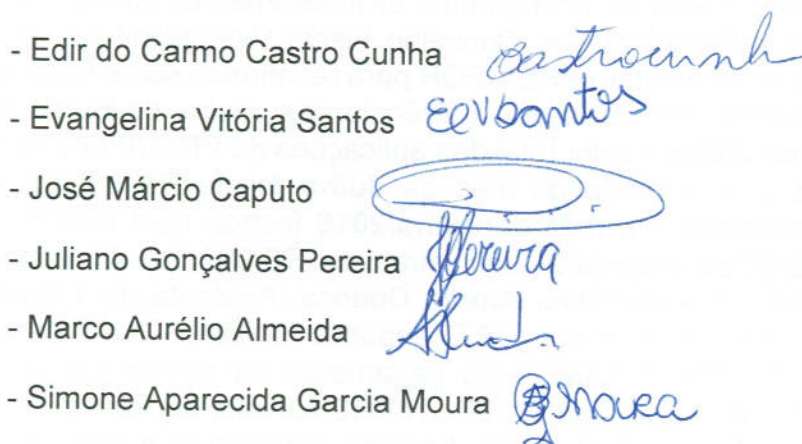 - Edir do Carmo Castro Cunha Castrocunh
- Evangelina Vitória Santos EEVSantos
- José Márcio Caputo
- Juliano Gonçalves Pereira JPereira
- Marco Aurélio Almeida
- Simone Aparecida Garcia Moura Moura